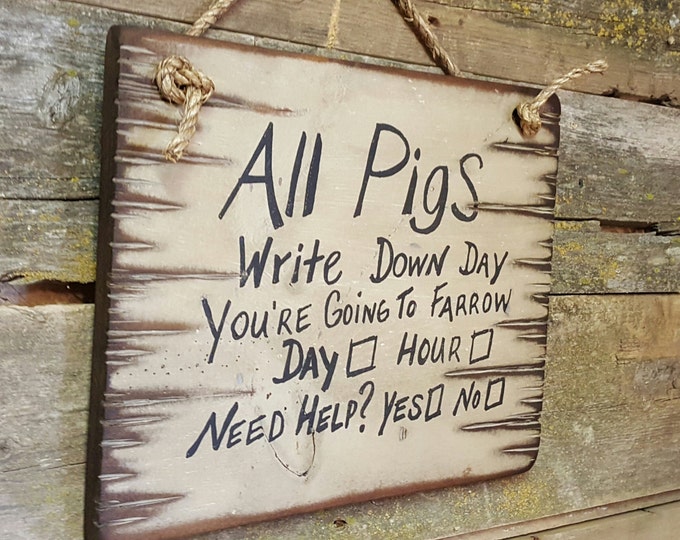 All Pigs
Write Down Day
You're Going To Farrow
Day☐ Hour☐
Need Help? Yes☐ No☐